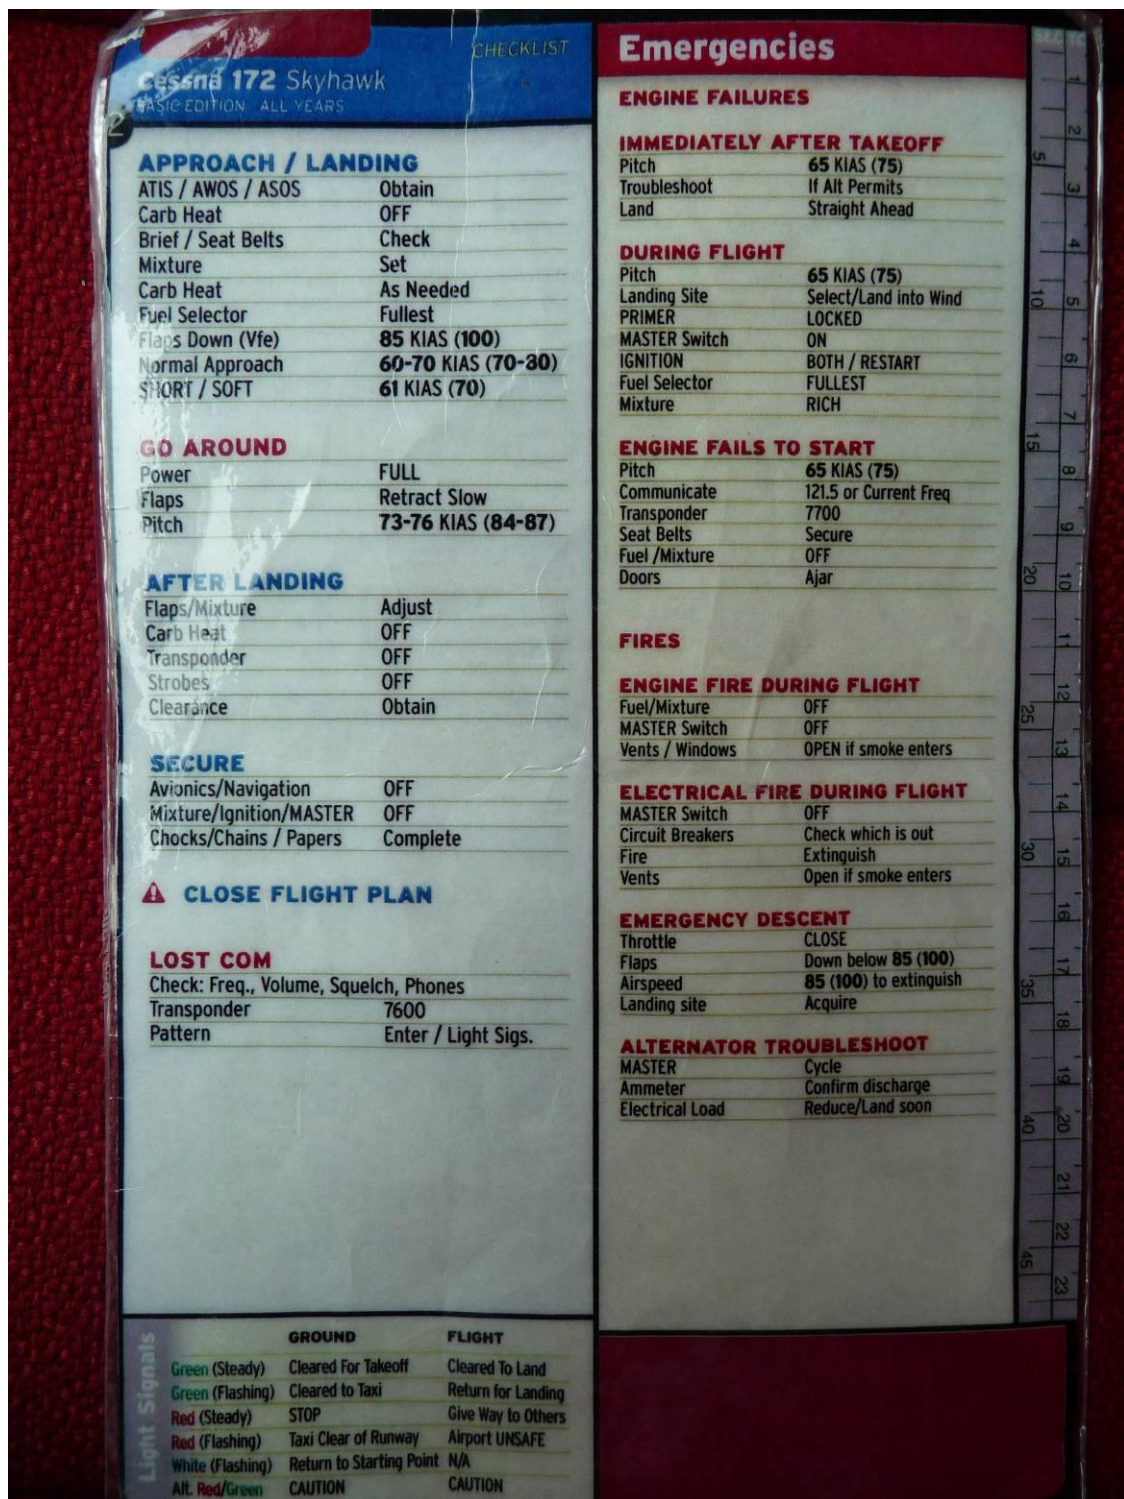 CHECKLIST
Cessna 172 Skyhawk
BASIC EDITION ALL YEARS
2
APPROACH / LANDING
ATIS / AWOS / ASOS Obtain
Carb Heat OFF
Brief / Seat Belts Check
Mixture Set
Carb Heat As Needed
Fuel Selector Fullest
Flaps Down (Vfe) 85 KIAS (100)
Normal Approach 60-70 KIAS (70-80)
SHORT / SOFT 61 KIAS (70)
GO AROUND
Power FULL
Flaps Retract Slow
Pitch 73-76 KIAS (84-87)
AFTER LANDING
Flaps/Mixture Adjust
Carb Heat OFF
Transponder OFF
Strobes OFF
Clearance Obtain
SECURE
Avionics/Navigation OFF
Mixture/Ignition/MASTER OFF
Chocks/Chains / Papers Complete
CLOSE FLIGHT PLAN
LOST COM
Check: Freq., Volume, Squelch, Phones
Transponder 7600
Pattern Enter / Light Sigs.
Light Signals
GROUND FLIGHT
Green (Steady) Cleared For Takeoff Cleared To Land
Green (Flashing) Cleared to Taxi Return for Landing
Red (Steady) STOP Give Way to Others
Red (Flashing) Taxi Clear of Runway Airport UNSAFE
White (Flashing) Return to Starting Point N/A
Alt. Red/Green CAUTION CAUTION
Emergencies
ENGINE FAILURES
IMMEDIATELY AFTER TAKEOFF
Pitch 65 KIAS (75)
Troubleshoot If Alt Permits
Land Straight Ahead
DURING FLIGHT
Pitch 65 KIAS (75)
Landing Site Select/Land into Wind
PRIMER LOCKED
MASTER Switch ON
IGNITION BOTH / RESTART
Fuel Selector FULLEST
Mixture RICH
ENGINE FAILS TO START
Pitch 65 KIAS (75)
Communicate 121.5 or Current Freq
Transponder 7700
Seat Belts Secure
Fuel /Mixture OFF
Doors Ajar
FIRES
ENGINE FIRE DURING FLIGHT
Fuel/Mixture OFF
MASTER Switch OFF
Vents / Windows OPEN if smoke enters
ELECTRICAL FIRE DURING FLIGHT
MASTER Switch OFF
Circuit Breakers Check which is out
Fire Extinguish
Vents Open if smoke enters
EMERGENCY DESCENT
Throttle CLOSE
Flaps Down below 85 (100)
Airspeed 85 (100) to extinguish
Landing site Acquire
ALTERNATOR TROUBLESHOOT
MASTER Cycle
Ammeter Confirm discharge
Electrical Load Reduce/Land soon
5 10 15 20 25 30 35 40 45
1 2 3 4 5 6 7 8 9 10 11 12 13 14 15 16 17 18 19 20 21 22 23